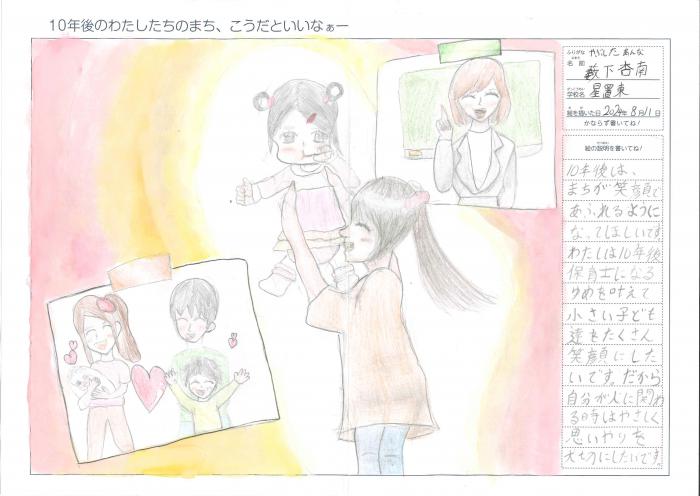 10年後のわたしたちのまち、こうだといいなぁー
ふりがな やぶした あんな
名前 薮下杏南
がっこうめい
学校名 星置東
絵を描いた日 2024年 8月11日
かならず書いてね!
絵の説明を書いてね!
10年後は、
まちが笑顔で
あふれるように
なってほしいです。
わたしは10年後
保育士になる
ゆめを叶えて
小さい子ども
達をたくさん
笑顔にした
いです。だから
自分が人に関わ
る時はやさしく
思いやりを
大切にしたいです。